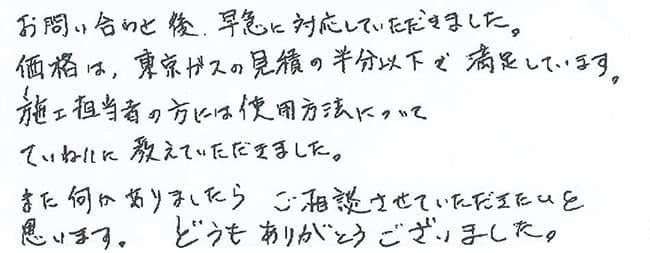 お問い合わせ後、早急に対応していただきました。
価格は、東京ガスの見積の半分以下で満足しています。
施工担当者の方には使用方法について
ていねいに教えていただきました。
また何かありましたら ご相談させていただきたいと
思います。 どうもありがとうございました。